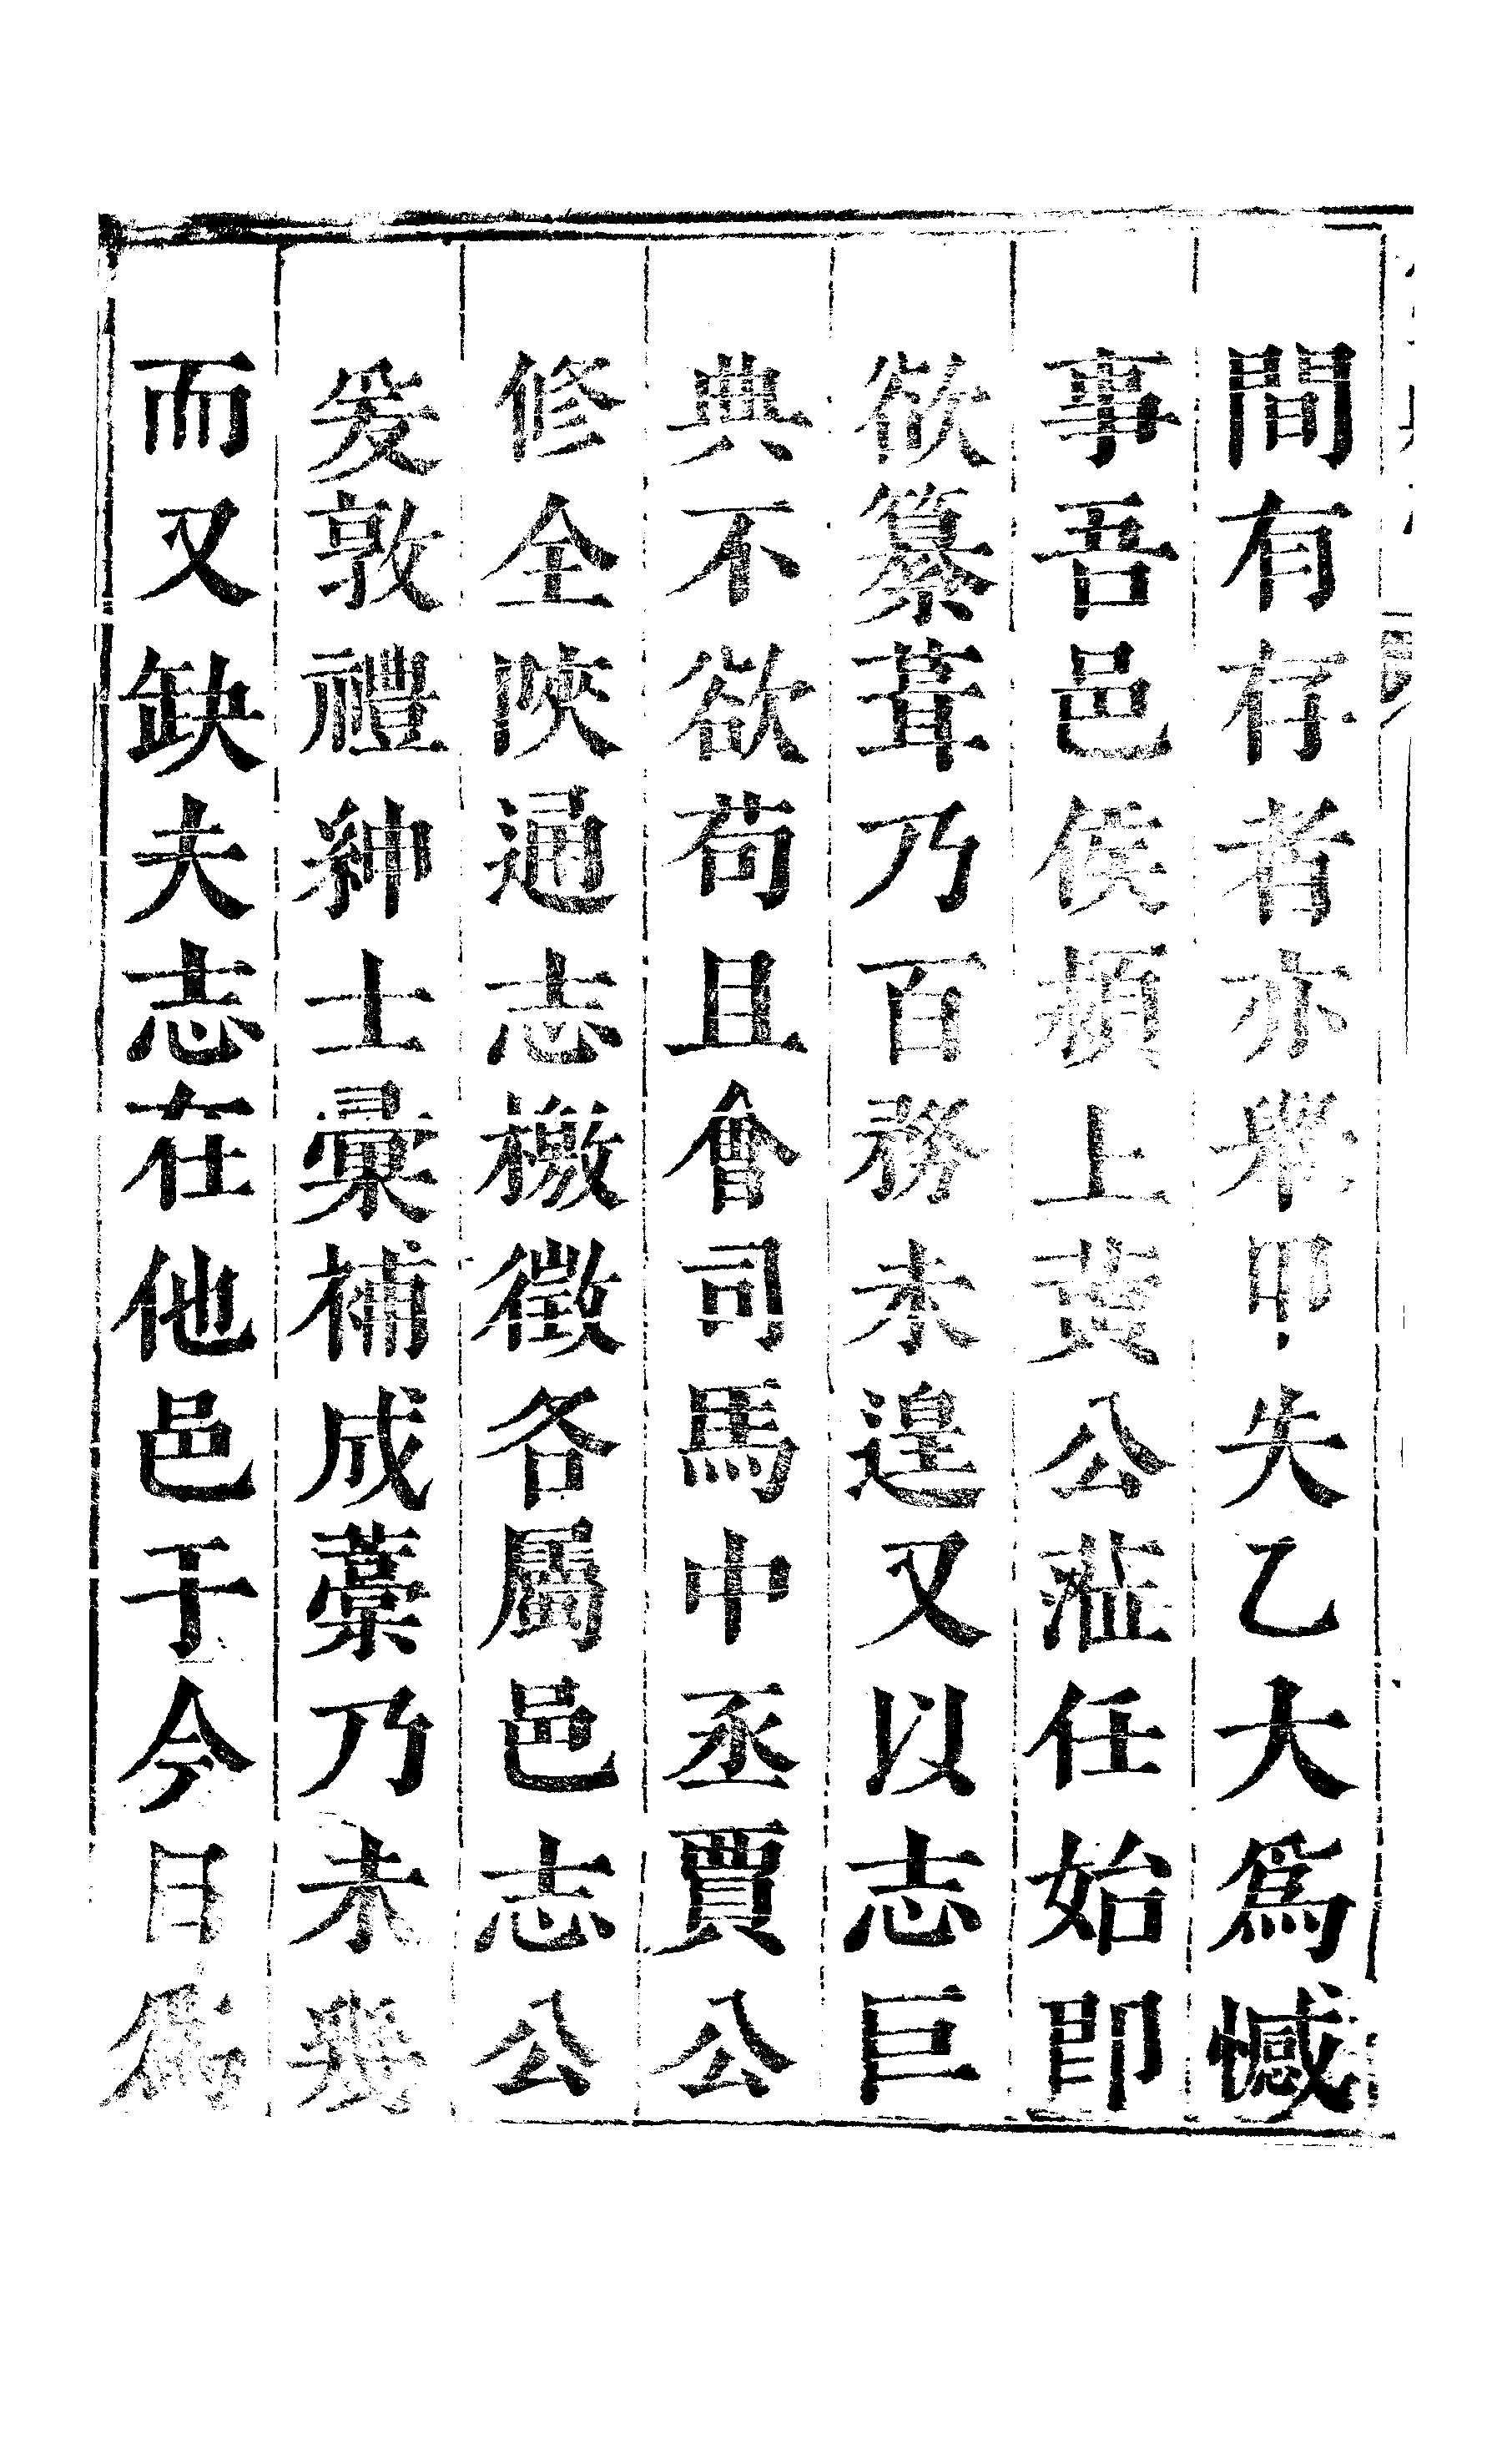 間有存者亦舉甲失乙大爲憾
事吾邑侯頻上黃公蒞任始即
欲纂葺乃百務未遑又以志巨
典不欲苟且會司馬中丞賈公
修全陜通志檄徵各屬邑志公
爰敦禮紳士彙補成藁乃未幾
而又缺夫志在他邑于今日爲